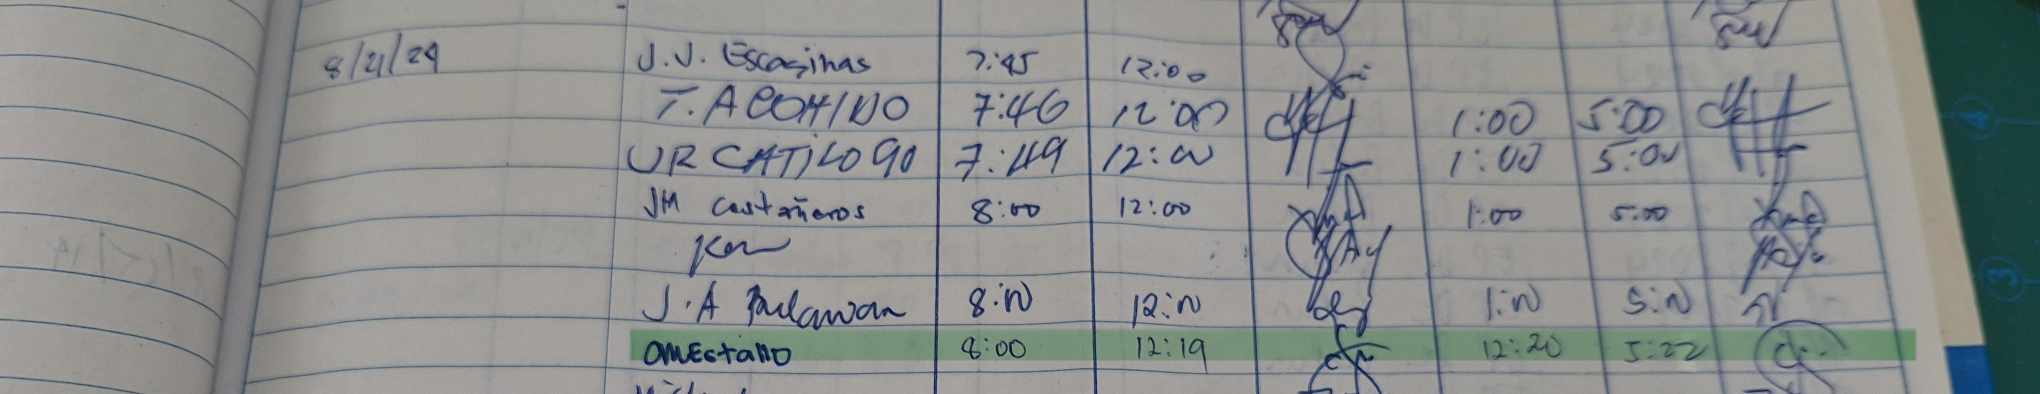 8/21/24 J.J. Escasinas 7:45 12:00
T. ACOHIDO 7:46 12:00 1:00 5:00
UR CATILOGO 7:49 12:00 1:00 5:00
JM Castañeros 8:00 12:00 1:00 5:00
Ken
J.A Bulawan 8:00 12:00 1:00 5:00
OMEstaño 8:00 12:19 12:20 5:22